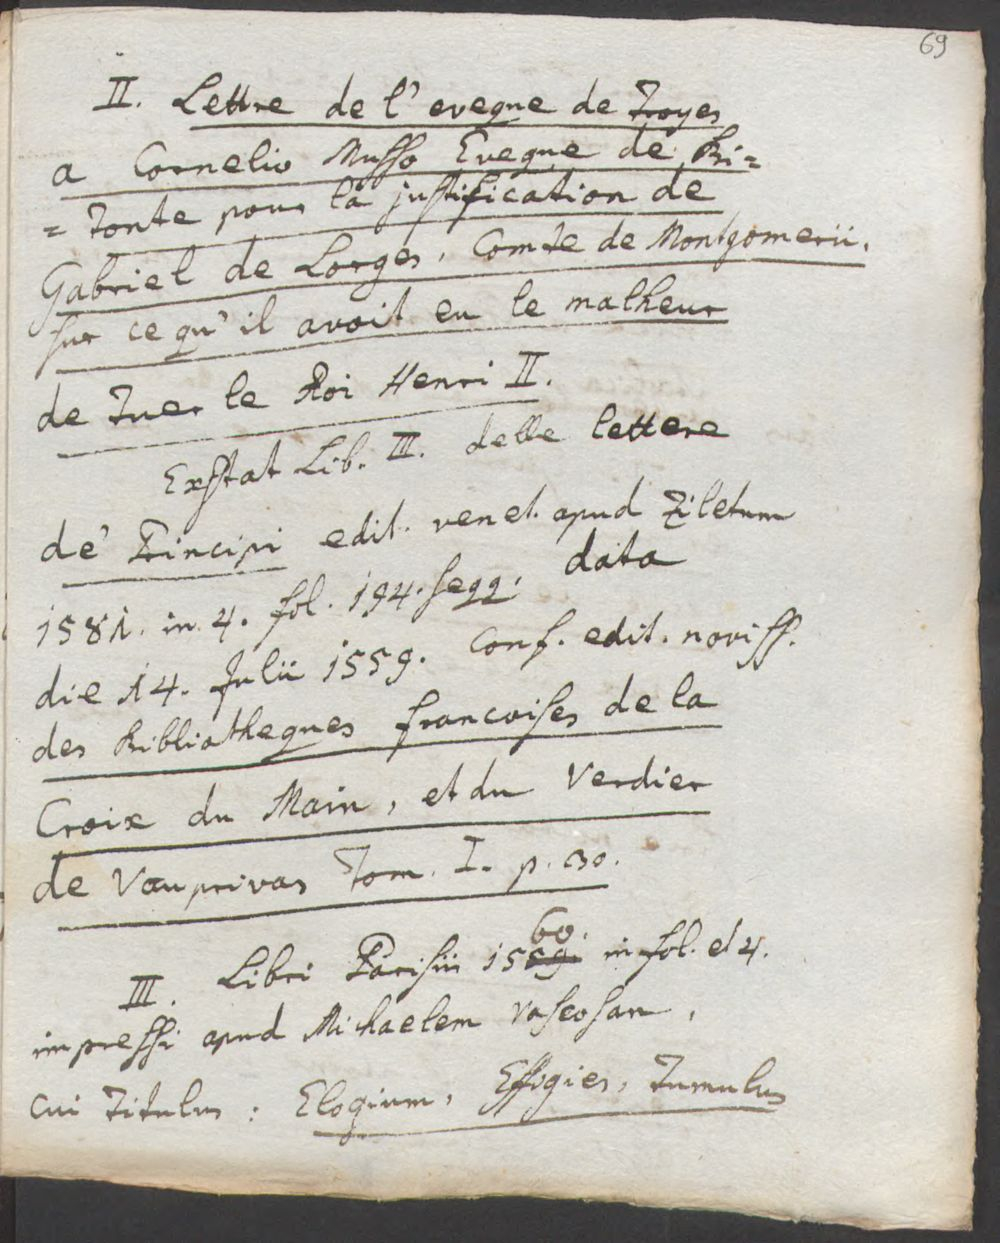 69
II. Lettre de l'eveque de Troyes
a Cornelio Musso Eveque de Bi=
=tonte pour la justification de
Gabriel de Lorges, Comte de Montgomerii.
sur ce qu'il avoit eu le malheur
de Tuer le Roi Henri II.
Exstat Lib. III. delle lettere
de' Principi edit. venet. apud Ziletum
1581. in 4. fol. 194. seqq. data
die 14. Julii 1559. conf. edit. noviss.
des Bibliotheques francoises de la
Croix du Main, et du Verdier
de Vauprivas Tom. I. p. 230.
60.
III. Libri Parisiis 1559. in fol. et 4.
impressi apud Michaelem Vaseosan,
cui Titulus: Elogium, Effigies, Tumulus